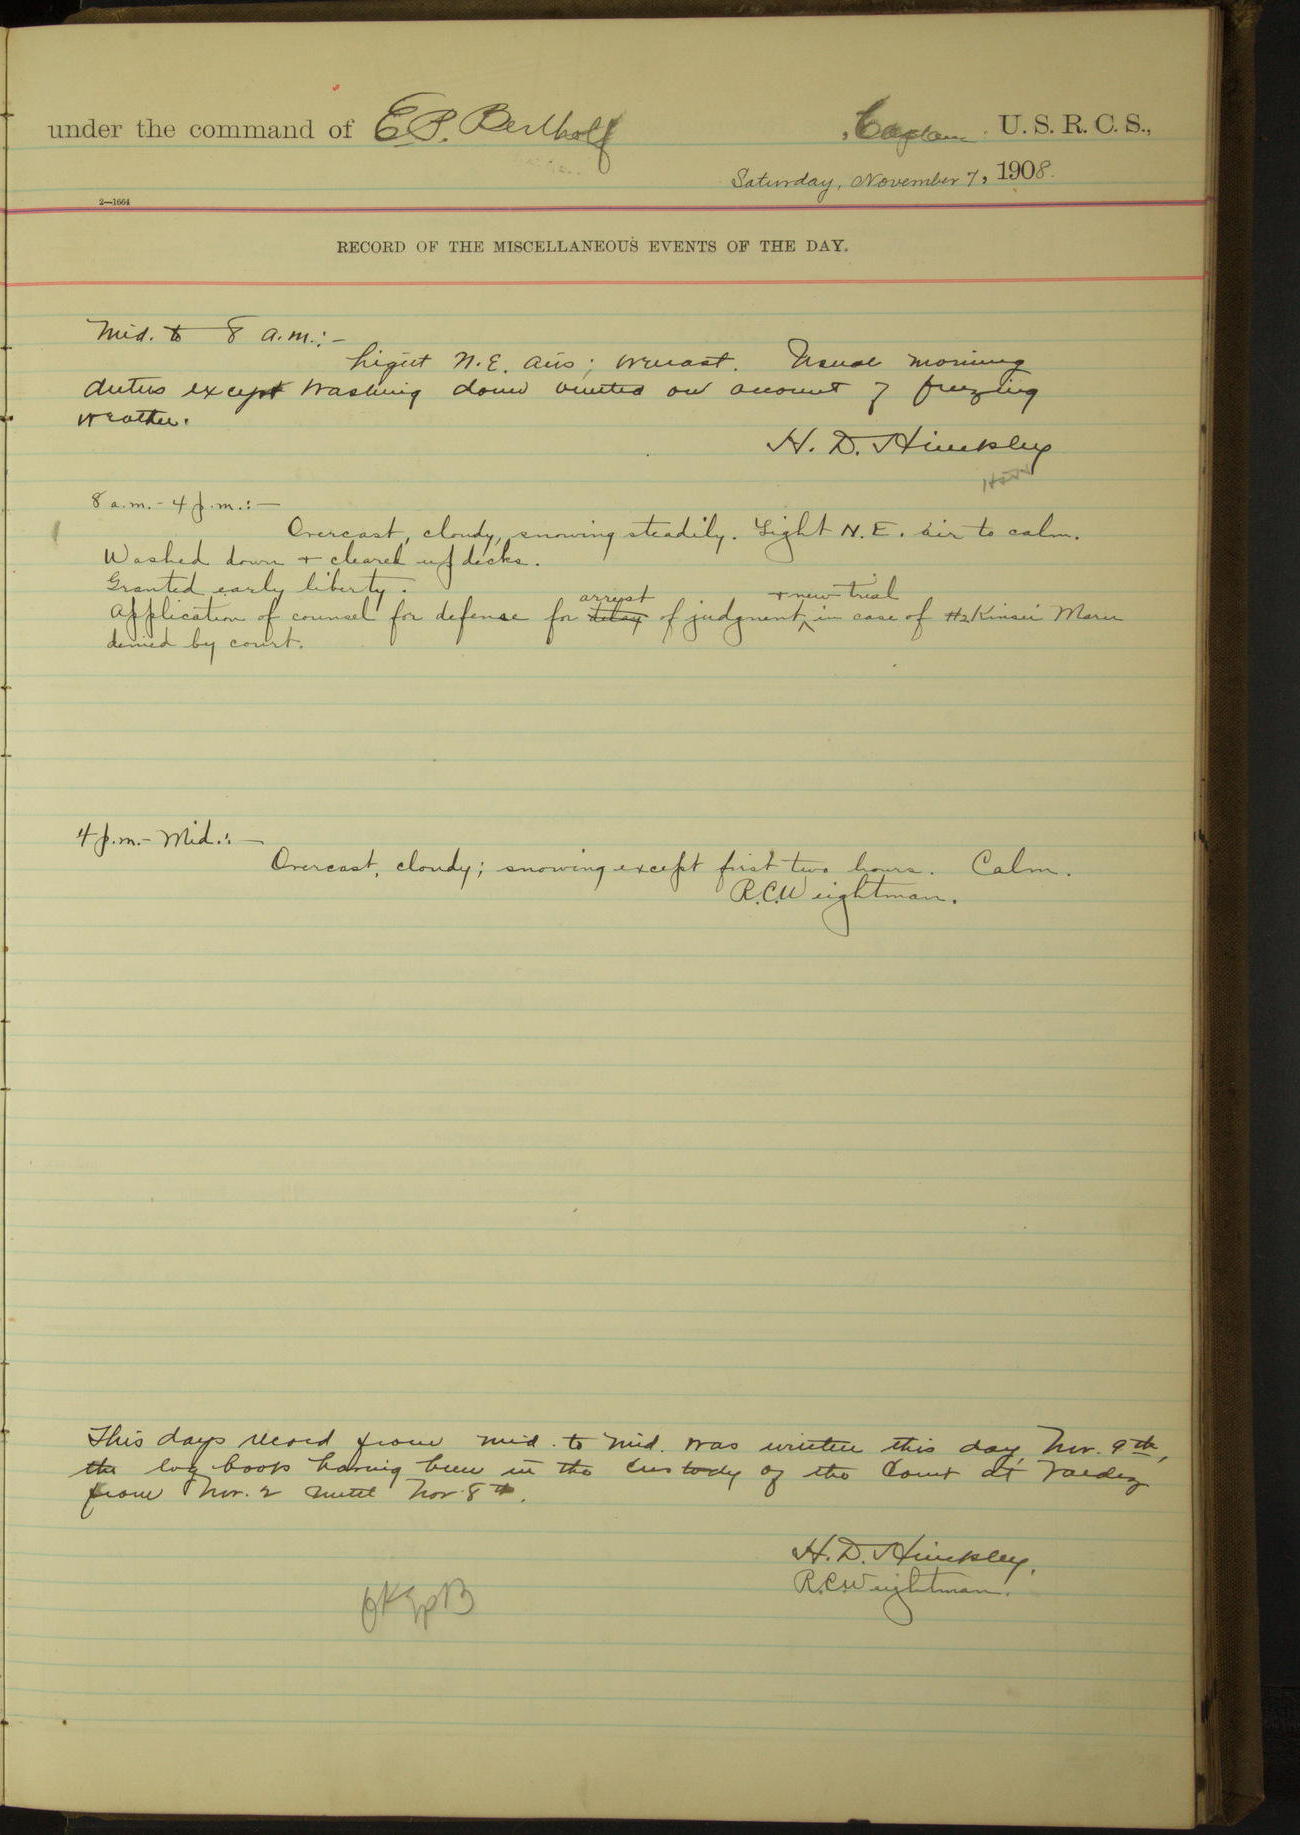 under the command of E. P. Bertholf, Captain U. S. R. C. S.,
Saturday, November 7, 1908.
2—1664
RECORD OF THE MISCELLANEOUS EVENTS OF THE DAY.
Mid. to 8 a.m.:-
Light N.E. airs; overcast. Usual morning
duties except washing down omitted on account of freezing
weather.
H. D. Hinckley
8 a.m. - 4 p.m.:-
Overcast, cloudy, snowing steadily. Light N.E. air to calm.
Washed down + cleared up decks.
Granted early liberty.
arrest + new trial
Application of counsel for defense for delay of judgment, in case of Kinsei Maru
denied by court.
4 p.m. - Mid.:-
Overcast, cloudy; snowing except first two hours. Calm.
R.C. Weightman.
This days record from mid. to mid. was written this day, Nov. 9th,
the log book having been in the custody of the Court at Valdez
from Nov. 2 until Nov 8th.
H. D. Hinckley.
R.C. Weightman.
OK EPB